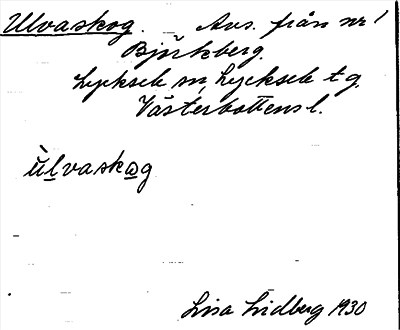 Ulvaskog. Avs. från nr 1
Björkberg.
Lycksele sn, Lycksele tg.
Västerbottens l.
ùlvaskωg
Lisa Lidberg 1930